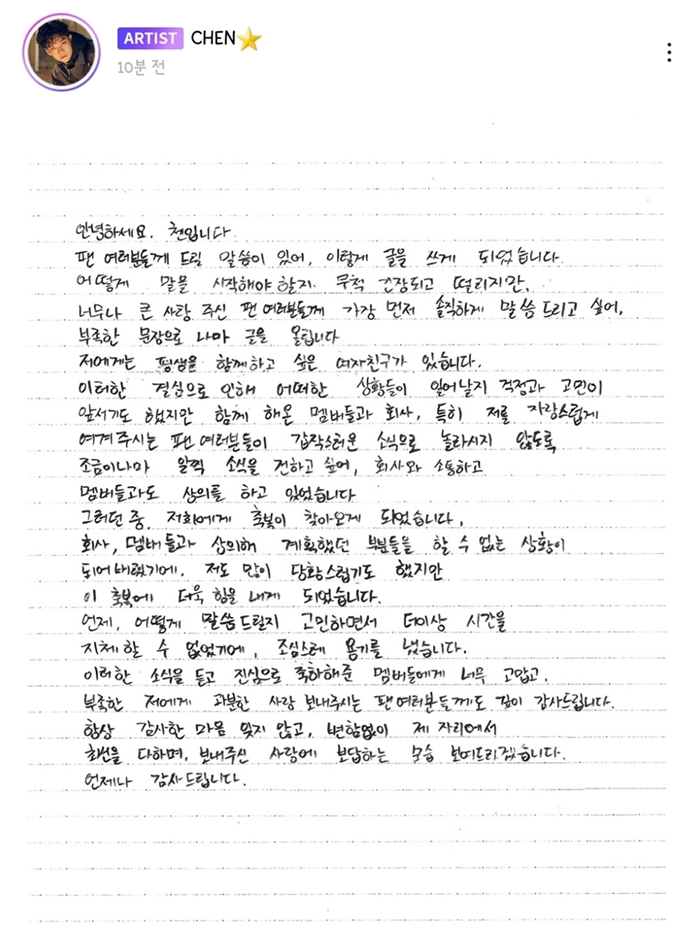 ARTIST CHEN
10분 전
안녕하세요. 첸입니다.
팬 여러분들께 드릴 말씀이 있어, 이렇게 글을 쓰게 되었습니다.
어떻게 말을 시작해야 할지 무척 긴장되고 떨리지만,
너무나 큰 사랑 주신 팬 여러분들께 가장 먼저 솔직하게 말씀드리고 싶어,
부족한 문장으로 나마 글을 올립니다
저에게는 평생을 함께하고 싶은 여자친구가 있습니다.
이러한 결심으로 인해 어떠한 상황들이 일어날지 걱정과 고민이
앞서기도 했지만 함께 해온 멤버들과 회사, 특히 저를 자랑스럽게
여겨주시는 팬 여러분들이 갑작스러운 소식으로 놀라시지 않도록
조금이나마 일찍 소식을 전하고 싶어, 회사와 소통하고
멤버들과도 상의를 하고 있었습니다
그러던 중, 저희에게 축복이 찾아오게 되었습니다.
회사, 멤버들과 상의해 계획했던 부분들을 할 수 없는 상황이
되어버렸기에, 저도 많이 당황스럽기도 했지만
이 축복에 더욱 힘을 내게 되었습니다.
언제, 어떻게 말씀드릴지 고민하면서 더이상 시간을
지체할 수 없었기에, 조심스레 용기를 냈습니다.
이러한 소식을 듣고 진심으로 축하해준 멤버들에게 너무 고맙고,
부족한 저에게 과분한 사랑 보내주시는 팬 여러분들께도 깊이 감사드립니다.
항상 감사한 마음 잊지 않고, 변함없이 제 자리에서
최선을 다하며, 보내주신 사랑에 보답하는 모습 보여드리겠습니다.
언제나 감사드립니다.